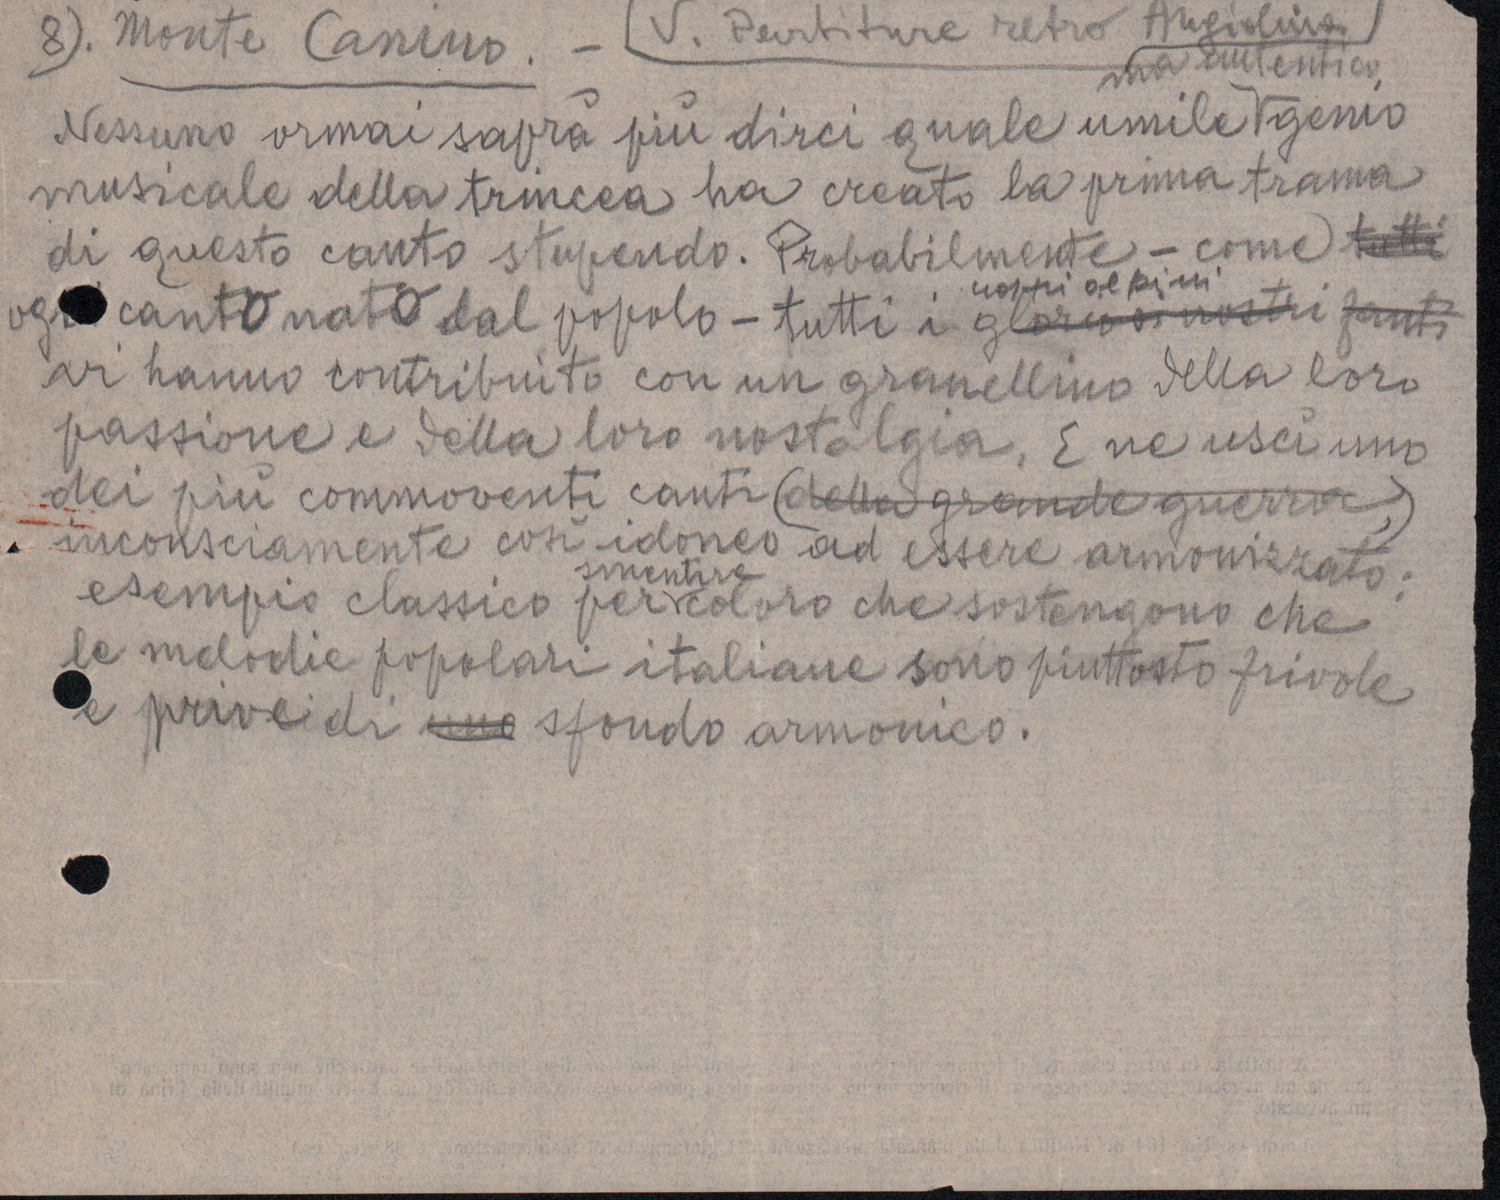 8). Monte Canino. – (V. Partiture retro Angiolina)
ma autentico
Nessuno ormai saprà più dirci quale umile genio
musicale della trincea ha creato la prima trama
di questo canto stupendo. Probabilmente – come tutti
alpini
canto nato dal popolo – tutti i gloriosi nostri fanti
vi hanno contribuito con un granellino della loro
passione e della loro nostalgia. E ne uscì uno
dei più commoventi canti (della grande guerra,)
inconsciamente così idoneo ad essere armonizzato;
smentire
esempio classico per coloro che sostengono che
le melodie popolari italiane sono piuttosto frivole
e prive di uno sfondo armonico.